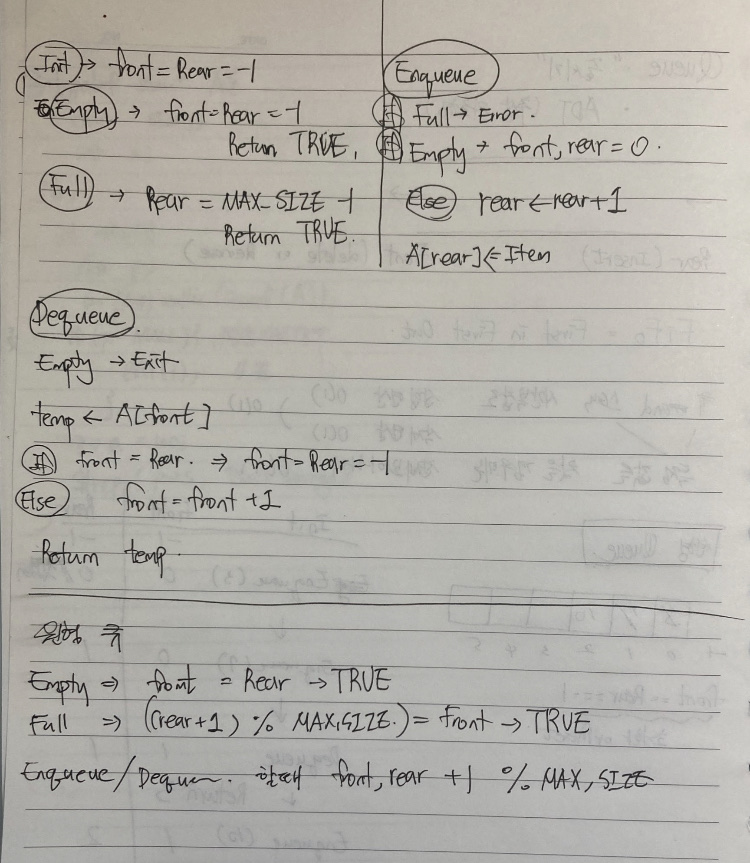 Init → front = Rear = -1
Empty → front = Rear = -1
Return TRUE,
Full → Rear = MAX_SIZE -1
Return TRUE.
Enqueue
If Full → Error.
If Empty → front, rear = 0.
Else rear ← rear + 1
A[rear] ← Item
Dequeue.
Empty → Exit
temp ← A[front]
If front = Rear. ⇒ front = Rear = -1
Else front = front + 1
Return temp.
원형 큐
Empty ⇒ front = Rear → TRUE
Full ⇒ ((rear+1) % MAX_SIZE.) = front → TRUE
Enqueue/Dequeue. 할때 front, rear +1 % MAX_SIZE